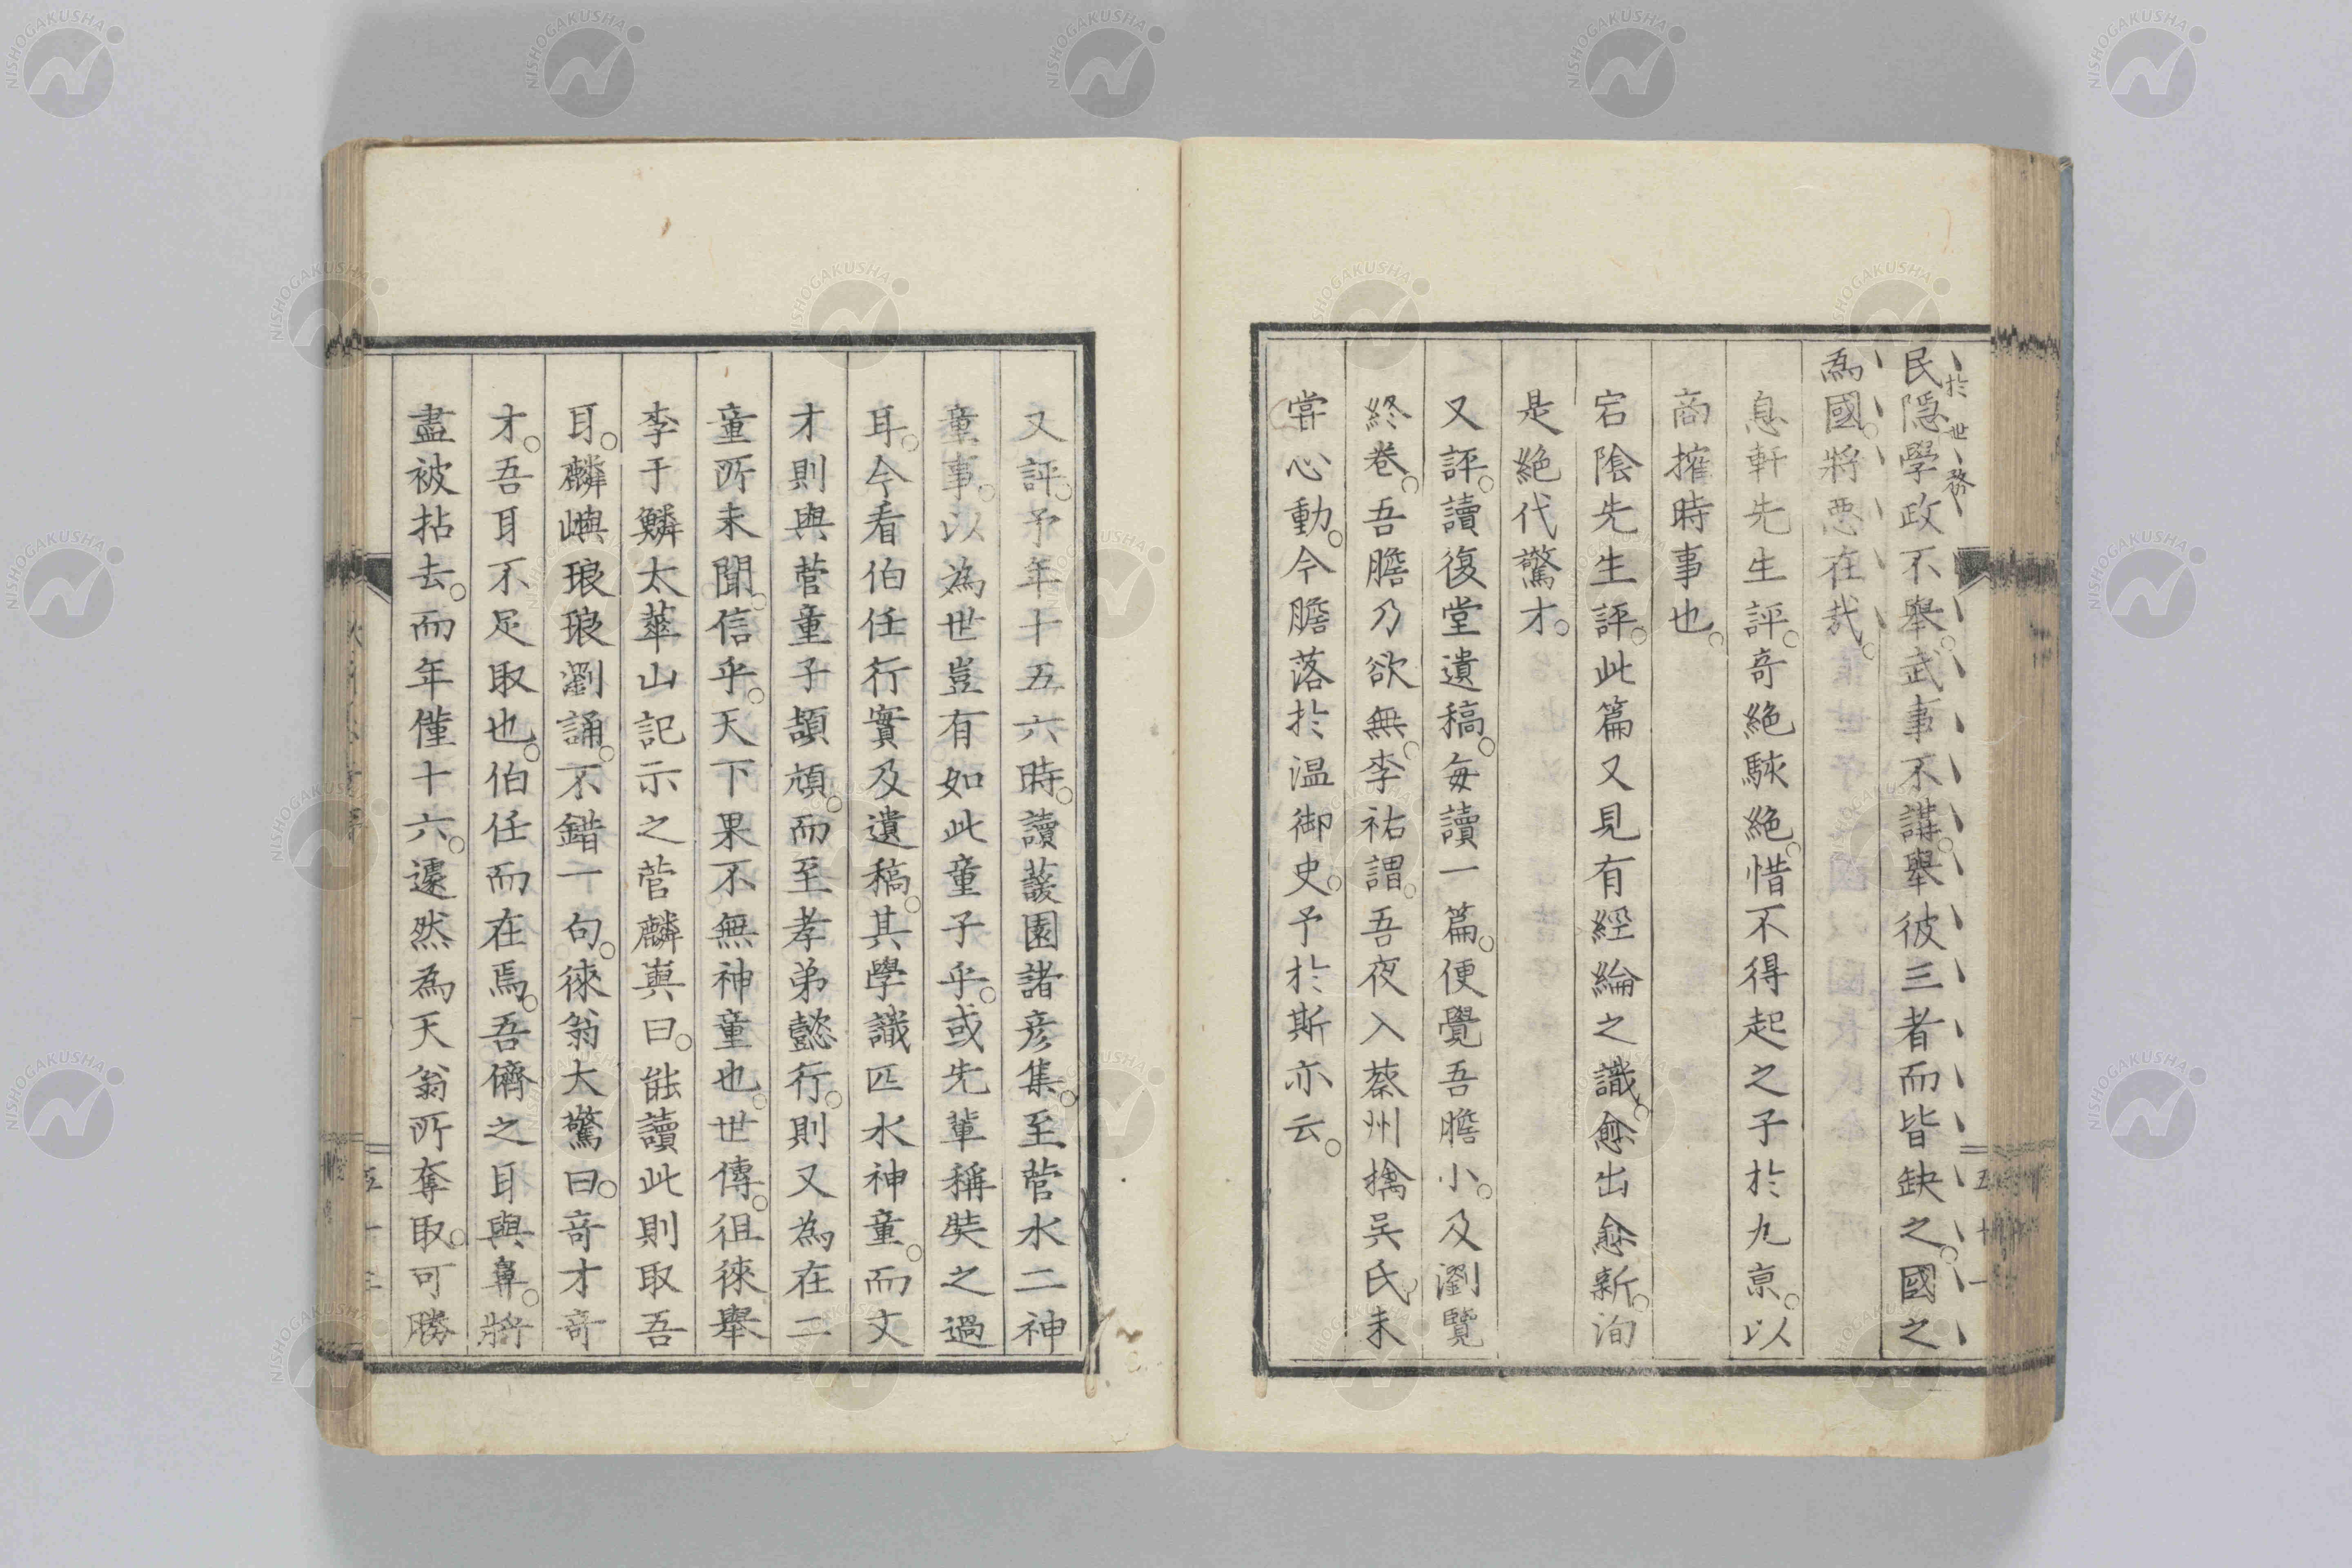 民隱學政不舉。武事不講。舉彼三者而皆缺之。國之
於世務
爲國。將惡在哉。
息軒先生評。奇絕駭絕。惜不得起之子於九京。以
商搉時事也。
宕陰先生評。此篇又見有經綸之識。愈出愈新。洵
是絕代驚才。
又評。讀復堂遺稿。每讀一篇。便覺吾膽小。及瀏覽
終卷。吾膽乃欲無。李祐謂。吾夜入蔡州擒吳氏。未
嘗心動。今膽落於温御史。予於斯亦云。
又評。予年十五六時。讀蘐園諸彦集。至菅水二神
童事。以為世豈有如此童子乎。或先輩稱奘之過
耳。今看伯任行實及遺稿。其學識匹水神童。而文
才則與菅童子頡頏。而至孝弟懿行。則又為在二
童所未聞。信乎。天下果不無神童也。世傳。徂徠舉
李于鱗太華山記示之菅麟嶼曰。能讀此則取吾
耳。麟嶼琅琅瀏誦。不錯一句。徠翁大驚曰。奇才奇
才。吾耳不足取也。伯任而在焉。吾儕之耳與鼻。將
盡被拈去。而年僅十六。遽然為天翁所奪取。可勝